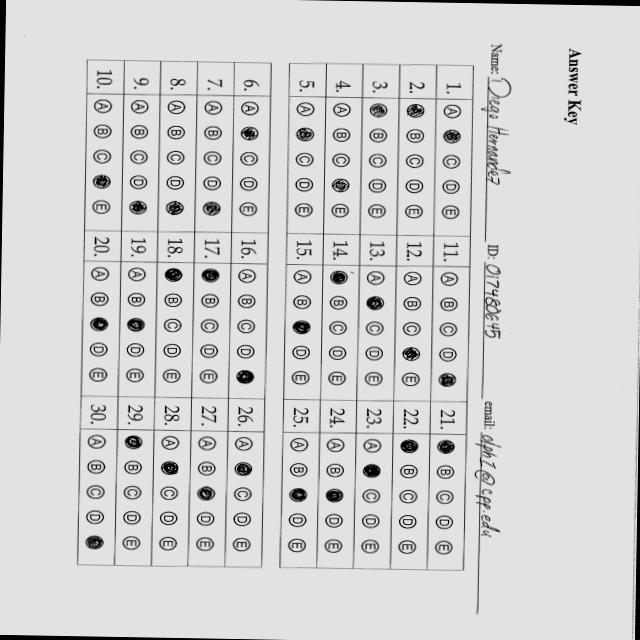 Answer Key
Name: Diego Hernandez ID: 017480645 email: dph1@cpp.edu
1. A C D E 11. A B C D 21. B C D E
2. B C D E 12. A B C E 22. B C D E
3. B C D E 13. A C D E 23. A C D E
4. A B C E 14. B C D E 24. A B D E
5. A C D E 15. A B D E 25. A B D E
6. A C D E 16. A B C D 26. A C D E
7. A B C D 17. B C D E 27. A B D E
8. A B C D 18. B C D E 28. A C D E
9. A B C D 19. A B D E 29. B C D E
10. A B C E 20. A B D E 30. A B C D